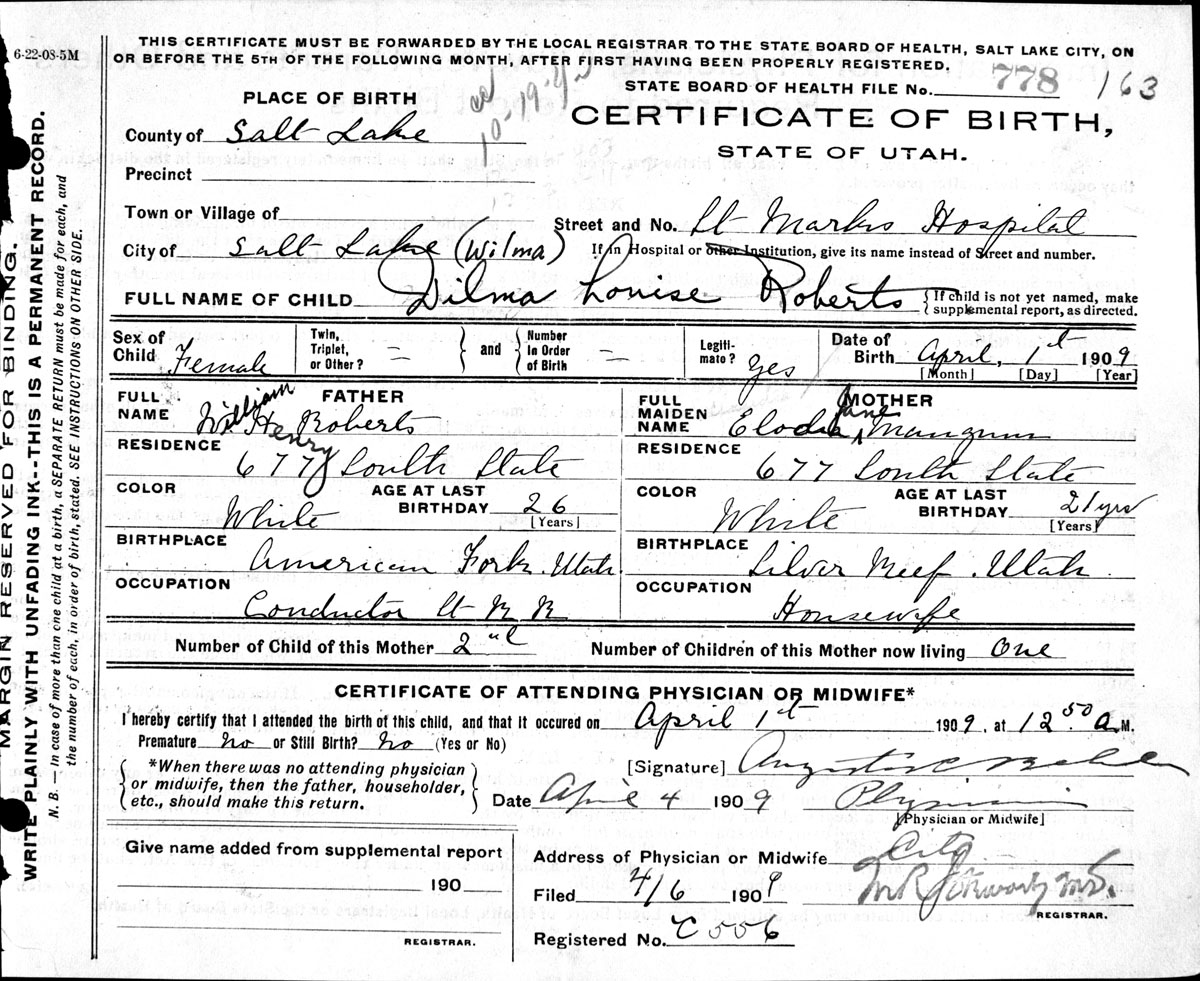 6-22-08-5M
THIS CERTIFICATE MUST BE FORWARDED BY THE LOCAL REGISTRAR TO THE STATE BOARD OF HEALTH, SALT LAKE CITY, ON
OR BEFORE THE 5TH OF THE FOLLOWING MONTH, AFTER FIRST HAVING BEEN PROPERLY REGISTERED.
STATE BOARD OF HEALTH FILE No. 778 163
PLACE OF BIRTH
CERTIFICATE OF BIRTH,
STATE OF UTAH.
County of Salt Lake
Precinct
Town or Village of
Street and No. St Marks Hospital
City of Salt Lake (Wilma)
If in Hospital or other Institution, give its name instead of Street and number.
FULL NAME OF CHILD Dilma Louise Roberts
If child is not yet named, make
supplemental report, as directed.
Sex of Child Female
Twin, Triplet, or Other? =
and Number in Order of Birth =
Legiti-mate? Yes
Date of Birth April, 1st 1909
[Month] [Day] [Year]
FATHER
FULL NAME Wm William Henry Roberts
RESIDENCE 677 South State
COLOR White
AGE AT LAST BIRTHDAY 26
[Years]
BIRTHPLACE American Fork. Utah
OCCUPATION Conductor St R R
MOTHER
FULL MAIDEN NAME Elodia Jane Mangum
RESIDENCE 677 South State
COLOR White
AGE AT LAST BIRTHDAY 21 yrs
[Years]
BIRTHPLACE Silver Reef. Utah
OCCUPATION Housewife
Number of Child of this Mother 2nd
Number of Children of this Mother now living One
CERTIFICATE OF ATTENDING PHYSICIAN OR MIDWIFE*
I hereby certify that I attended the birth of this child, and that it occured on April 1st 1909, at 12.50 a M.
Premature No or Still Birth? No (Yes or No)
*When there was no attending physician
or midwife, then the father, householder,
etc., should make this return.
[Signature] Augustus C Behle
Date April 4 1909 Physician
[Physician or Midwife]
Give name added from supplemental report
190
REGISTRAR.
Address of Physician or Midwife City
Filed 4/6 1909
REGISTRAR.
Registered No. C 556
MARGIN RESERVED FOR BINDING.
WRITE PLAINLY WITH UNFADING INK--THIS IS A PERMANENT RECORD.
N. B.—In case of more than one child at a birth, a SEPARATE RETURN must be made for each, and
the number of each, in order of birth, stated. SEE INSTRUCTIONS ON OTHER SIDE.